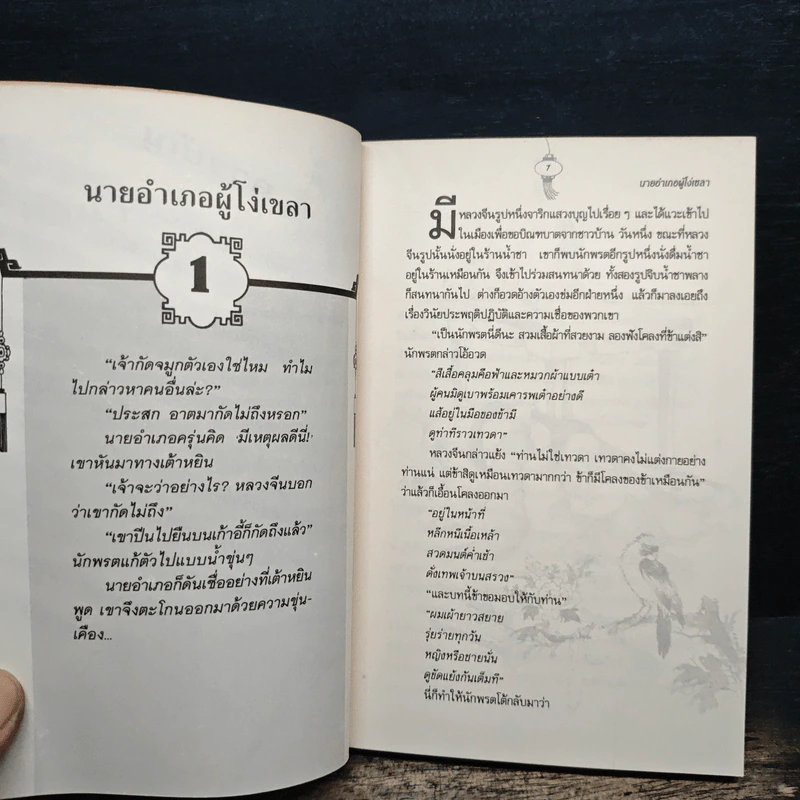 นายอำเภอผู้โง่เขลา
1
“เจ้ากัดจมูกตัวเองใช่ไหม ทำไม
ไปกล่าวหาคนอื่นล่ะ?”
“ประสก อาตมากัดไม่ถึงหรอก”
นายอำเภอครุ่นคิด ‘มีเหตุผลดีนี่!’
เขาหันมาทางเต้าหยิน
“เจ้าจะว่าอย่างไร? หลวงจีนบอก
ว่าเขากัดไม่ถึง”
“เขาปีนไปยืนบนเก้าอี้ก็กัดถึงแล้ว”
นักพรตแก้ตัวไปแบบน้ำขุ่นๆ
นายอำเภอก็ดันเชื่ออย่างที่เต้าหยิน
พูด เขาจึงตะโกนออกมาด้วยความขุ่น-
เคือง...
1
นายอำเภอผู้โง่เขลา
มีหลวงจีนรูปหนึ่งจาริกแสวงบุญไปเรื่อย ๆ และได้แวะเข้าไป
ในเมืองเพื่อขอบิณฑบาตจากชาวบ้าน วันหนึ่ง ขณะที่หลวง
จีนรูปนั้นนั่งอยู่ในร้านน้ำชา เขาก็พบนักพรตอีกรูปหนึ่งนั่งดื่มน้ำชา
อยู่ในร้านเหมือนกัน จึงเข้าไปร่วมสนทนาด้วย ทั้งสองรูปจิบน้ำชาพลาง
ก็สนทนากันไป ต่างก็อวดอ้างตัวเองข่มอีกฝ่ายหนึ่ง แล้วก็มาลงเอยถึง
เรื่องวินัยประพฤติปฏิบัติและความเชื่อของพวกเขา
“เป็นนักพรตนี่ดีนะ สวมเสื้อผ้าที่สวยงาม ลองฟังโคลงที่ข้าแต่งสิ”
นักพรตกล่าวโอ้อวด
“สีเสื้อคลุมคือฟ้าและหมวกผ้าแบบเต๋า
ผู้คนมิดูเบาพร้อมเคารพเต๋าอย่างดี
แส้อยู่ในมือของข้ามี
ดูท่าทีราวเทวดา”
หลวงจีนกล่าวแย้ง “ท่านไม่ใช่เทวดา เทวดาคงไม่แต่งกายอย่าง
ท่านแน่ แต่ข้าสิดูเหมือนเทวดามากกว่า ข้าก็มีโคลงของข้าเหมือนกัน”
ว่าแล้วก็เอื้อนโคลงออกมา
“อยู่ในหน้าที่
หลีกหนีเนื้อเหล้า
สวดมนต์ค่ำเช้า
ดั่งเทพเจ้าบนสรวง”
“และบทนี้ข้าขอมอบให้กับท่าน”
“ผมเผ้ายาวสยาย
รุ่ยร่ายทุกวัน
หญิงหรือชายนั่น
ดูขัดแย้งกันเต็มที”
นี่ก็ทำให้นักพรตโต้กลับมาว่า